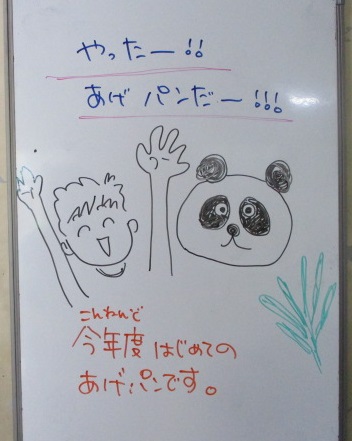 やったー!!
あげパンだー!!!
こんねんど
今年度はじめての
あげパンです。